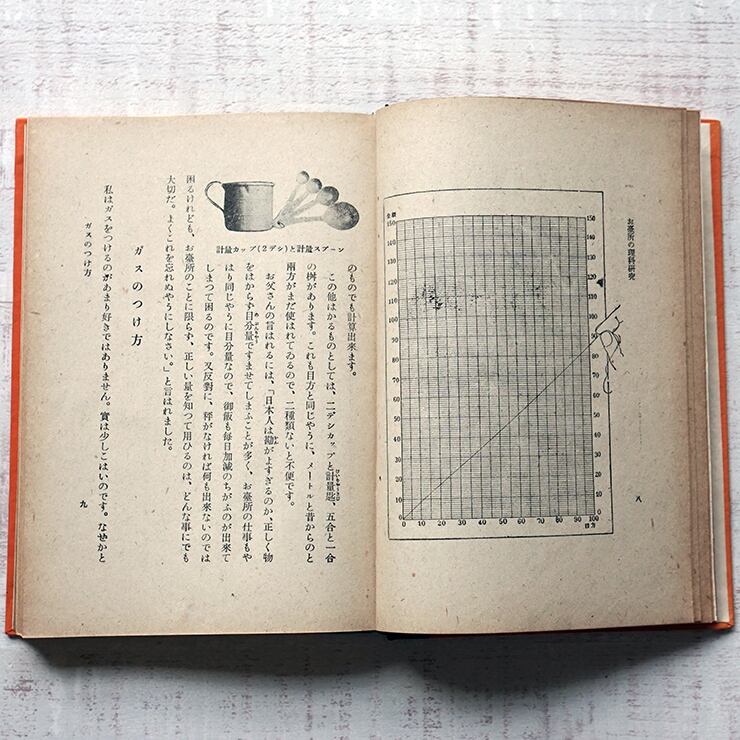 お臺所の理科研究
金額
150 150
140 140
130 130
120 120
110 110
100 100
90 90
80 80
70 70
60 60
50 50
40 40
30 30
20 20
10 10
0 0
0 10 20 30 40 50 60 70 80 90 100
目方
八
のものでも計算出來ます。
この他はかるものとしては、二デシカップと計量匙、五合と一合
の桝があります。これも目方と同じやうに、メートルと昔からのと
兩方がまだ使はれてゐるので、二種類ないと不便です。
お父さんの言はれるには、「日本人は勘がよすぎるのか、正しく物
をはからず目分量ですませてしまふことが多く、お臺所の仕事もや
はり同じやうに目分量なので、御飯も毎日加減のちがふのが出來て
しまつて困るのです。又反對に、秤がなければ何も出來ないのでは
計量カップ(2デシ)と計量スプーン
困るけれども、お臺所のことに限らず、正しい量を知つて用ひるのは、どんな事にでも
大切だ。よくこれを忘れぬやうにしなさい。」と言はれました。
ガスのつけ方
私はガスをつけるのがあまり好きではありません。實は少しこはいのです。なぜかと
ガスのつけ方
九